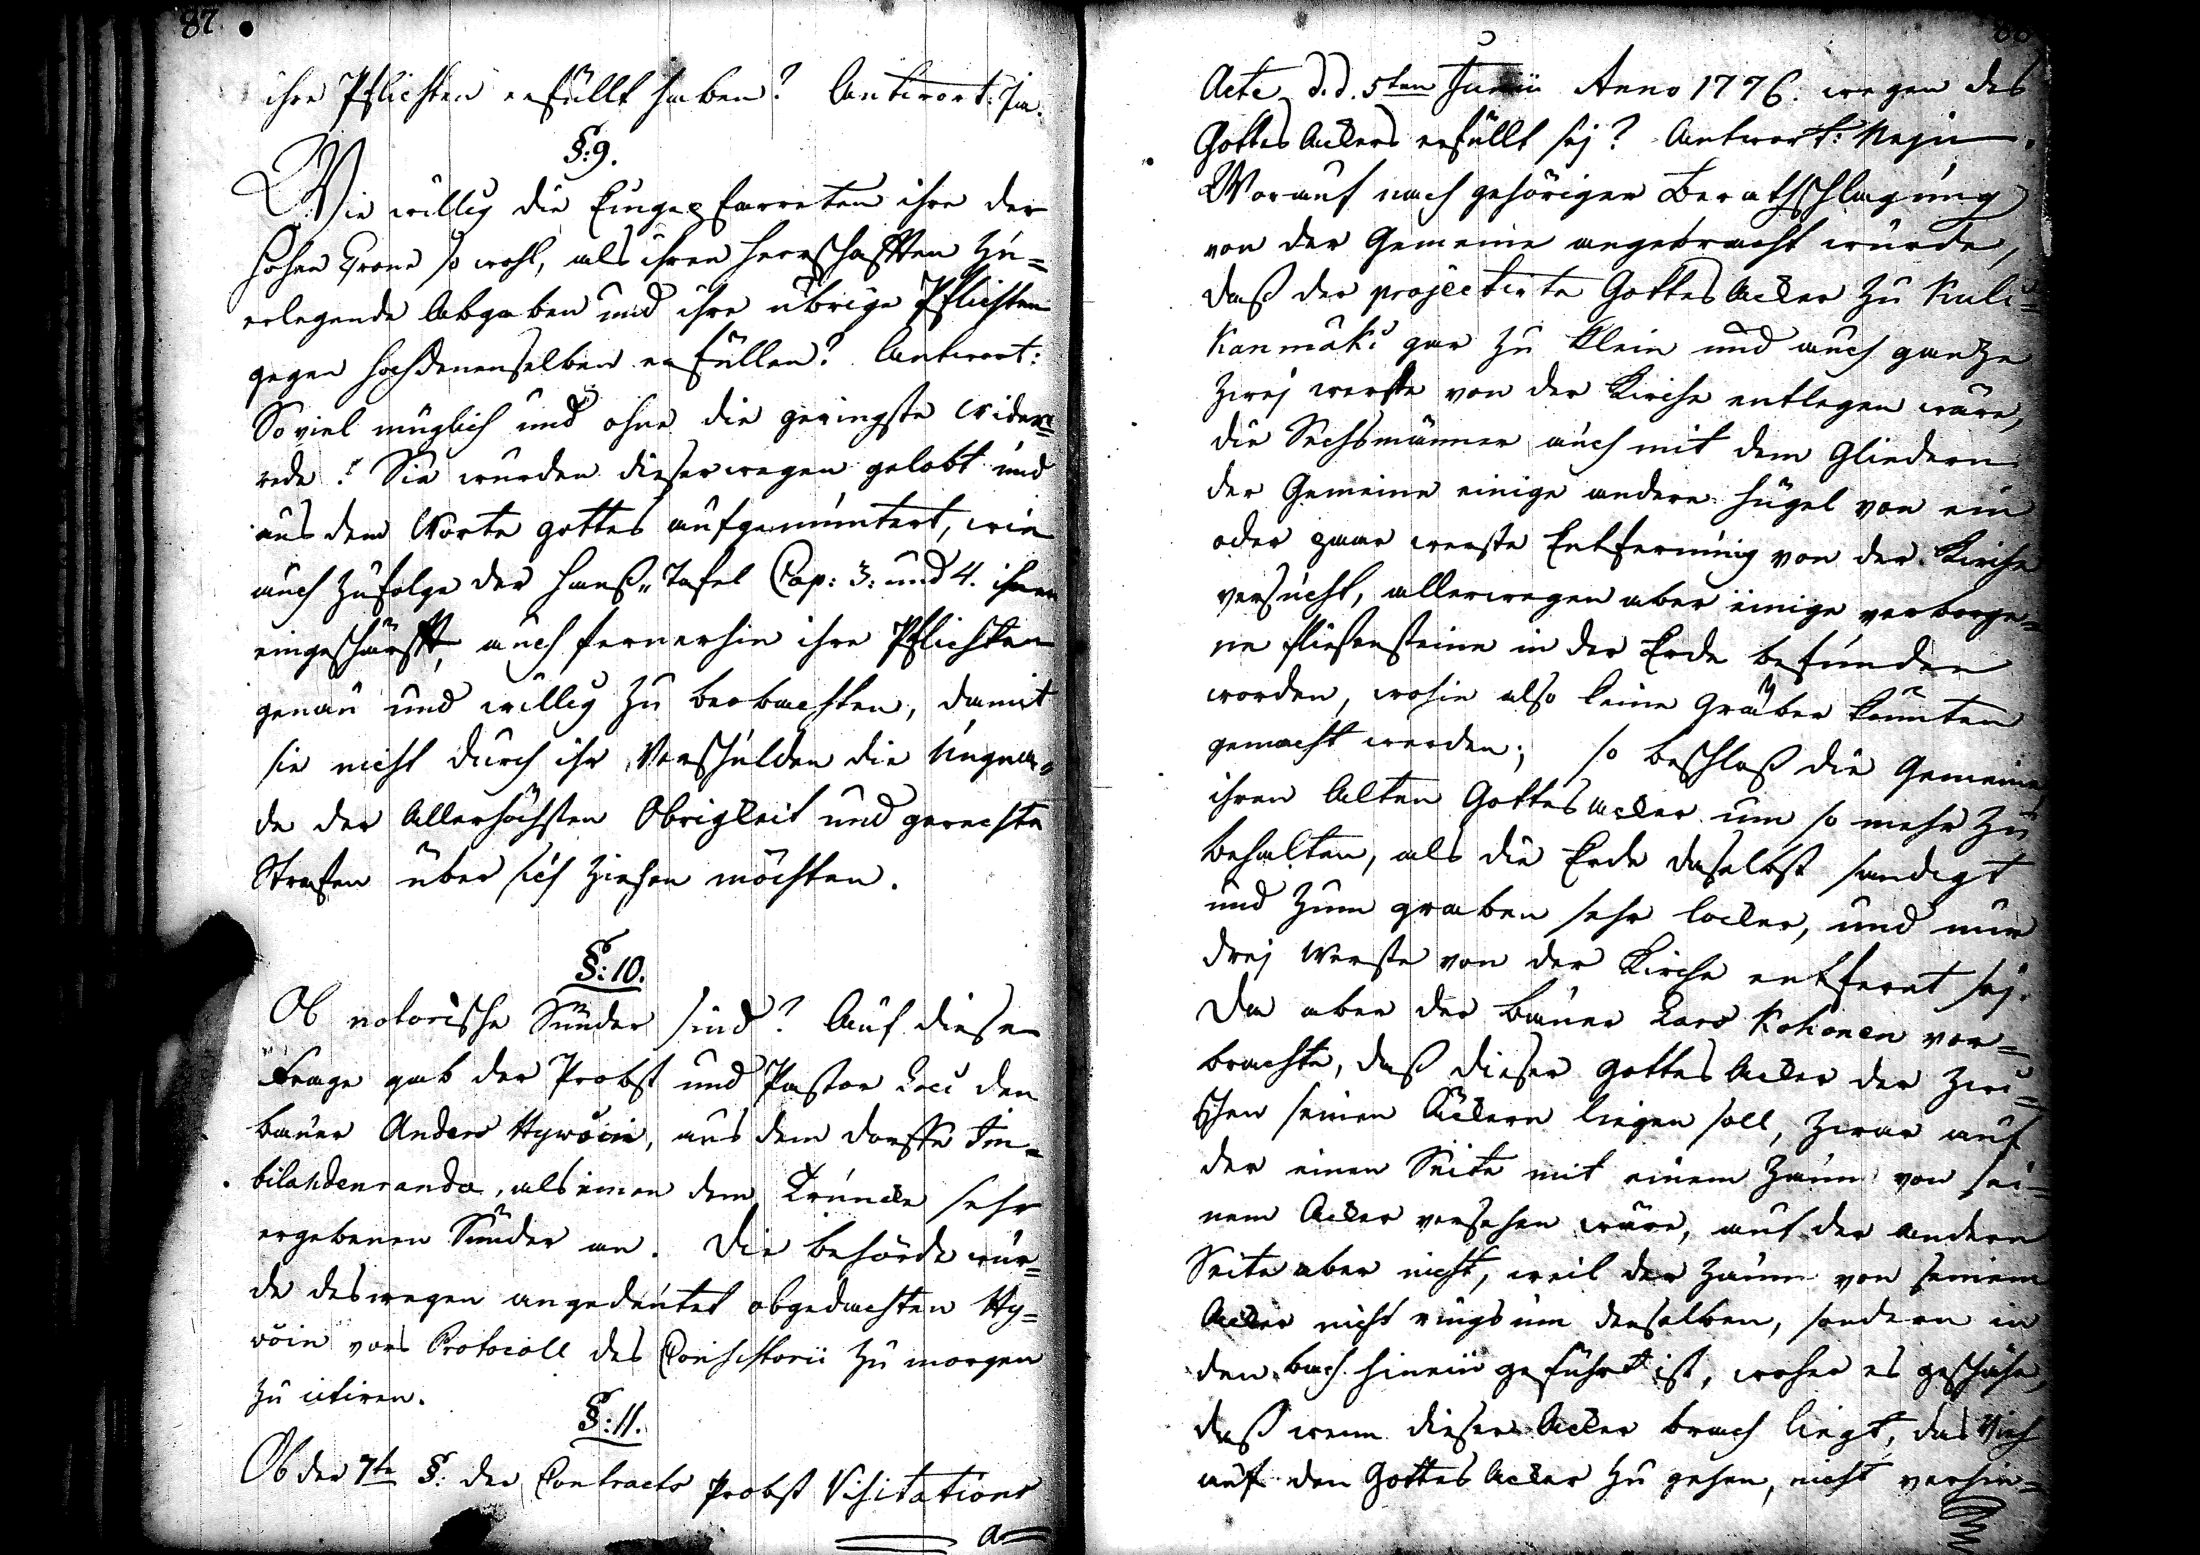 87.
ihre Pflichten erfüllt haben? Antwort: Ja.
§:9.
Wie willig die Eingepfarreten ihre der
hohen Crone so wohl, als ihren Herrschafften zu=
erlegende Abgaben und ihre übrige Pflichten
gegen hochdenenselben erfüllen? Antwort:
So viel müglich und ohne die geringste Wider=
rede! Sie wurden dieserwegen gelobt und
aus dem Worte gottes aufgemuntert, wie
auch zufolge der Hauß„Tafel Cap: 3: und 4. ihnen
eingeschärfft, auch fernerhin ihre Pflichten
genau und willig zu beobachten, damit
sie nicht durch ihr Verschulden die Ungna=
de der Allerhöchsten Obrigkeit und gerechte
Strafen über sich ziehen möchten.
§:10.
Ob notorische Sünder sind? Auf diese
Frage gab der Probst und Pastor Loci den
bauer Anders Hywöin, aus dem dorffe Im=
bilahdenranda, als einen dem Truncke sehr
ergebenen Sünder an. Die behörde wur=
de deswegen angedeutet obgedachten Hy=
wöin vors Protocoll des Consistorii zu morgen
zu citiren.
§:11.
Ob der 7te §: der Contracts Probst Visitations
a
Acte d.d. 5ten Junii Anno 1776. wegen des
Gottes Ackers erfüllt sej? Antwort: Nejn.
Worauf nach gehöriger Berathschlagung
von der Gemeine angebracht wurde,
daß der projectirte Gottes Acker zu Kuli=
kanmäki gar zu klein und auch gantze
zwej werste von der Kirche entlegen wäre,
die Sechsmänner auch mit dem Gliedern
der Gemeine einige andere Hügel von ein
oder paar werste Entfernung von der Kirche
versucht, allerwegen aber einige verborge=
ne fliesensteine in der Erde befunden
worden, wohin also keine Gräber konnten
gemacht werden; so beschloß die Gemeine
ihren Alten Gottes Acker um so mehr zu
behalten, als die Erde daselbst sandigt
und zum graben sehr locker, und nur
drej Werste von der Kirche entfernt sej.
Da aber der bauer Lars Kohonen vor=
brachte, daß dieser Gottes Acker der zwi=
schen seinen Äckern liegen soll, zwar auf
der einen Seite mit einem Zaun von sei=
nem Acker versehen wäre, auf der andern
Seite aber nicht, weil der Zaun von seinem
Acker nicht rings um denselben, sondern in
den bach hinein geführt ist, woher es geschähe,
daß wenn dieser Acker brach liegt, das Vieh
auf den Gottes Acker zu gehen, nicht verhin=